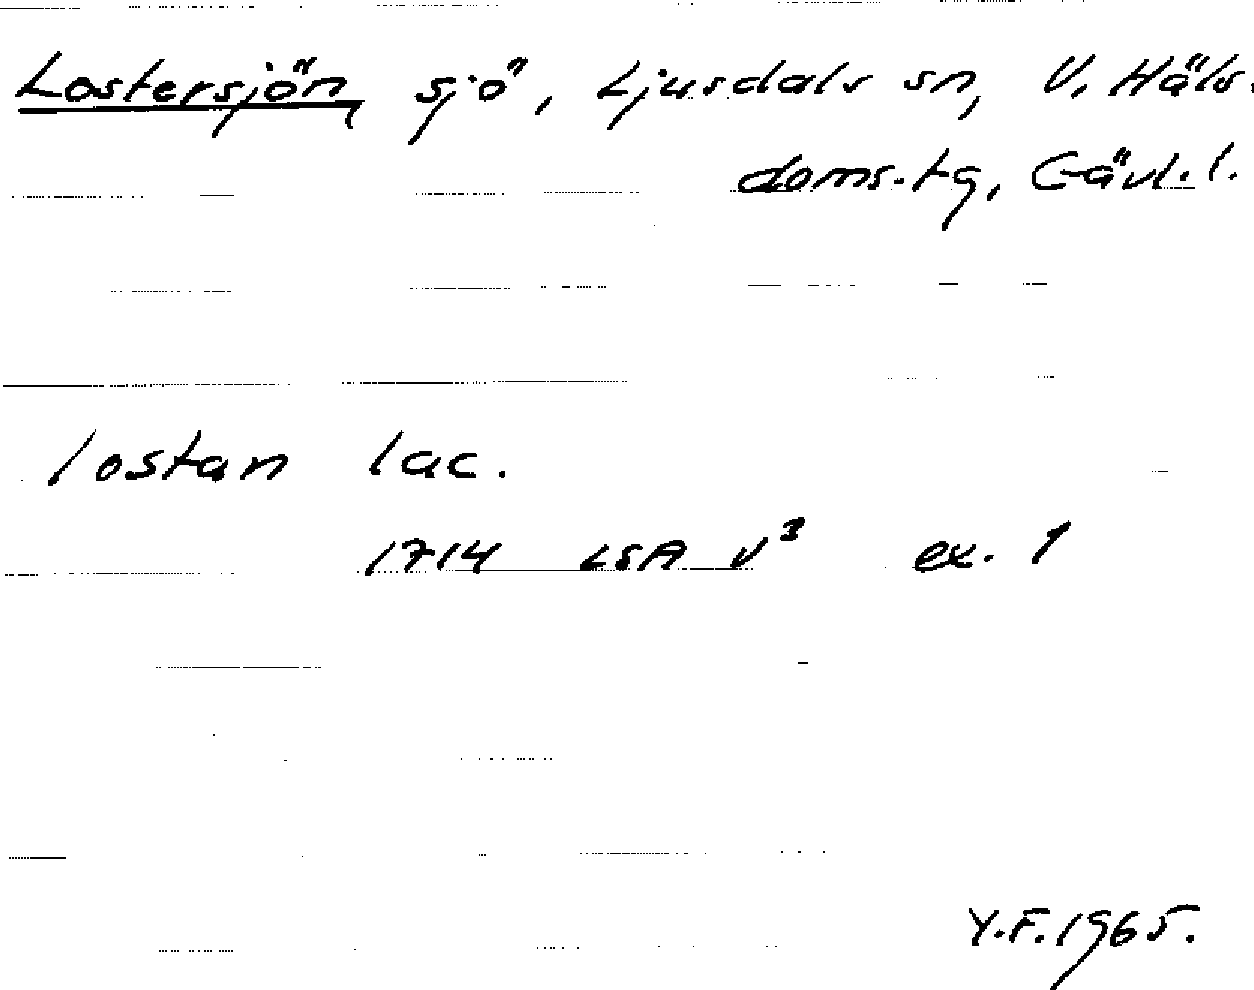 Lostersjön sjö, Ljusdals sn, V. Häls.
doms.tg, Gävl.l.
lostan lac.
1714 LSA V³ ex. 1
Y.F. 1965.